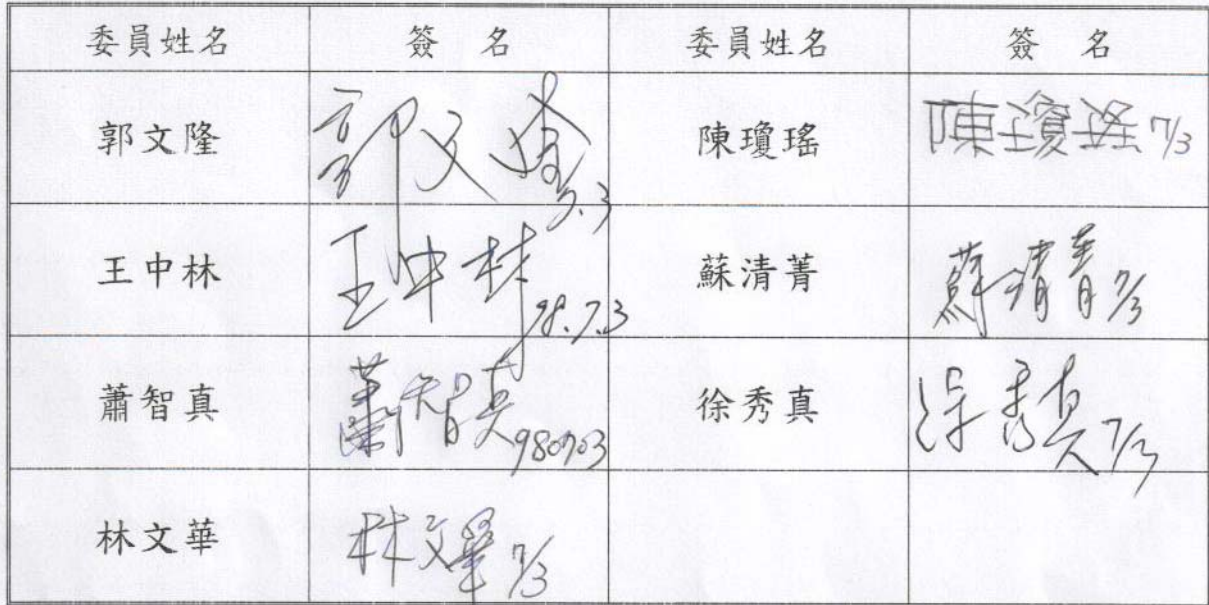 委員姓名 簽名 委員姓名 簽名
郭文隆 郭文隆 7.3 陳瓊瑤 陳瓊瑤 7/3
王中林 王中林 98.7.3 蘇清菁 蘇清菁 7/3
蕭智真 蕭智真 980703 徐秀真 徐秀真 7/3
林文華 林文華 7/3